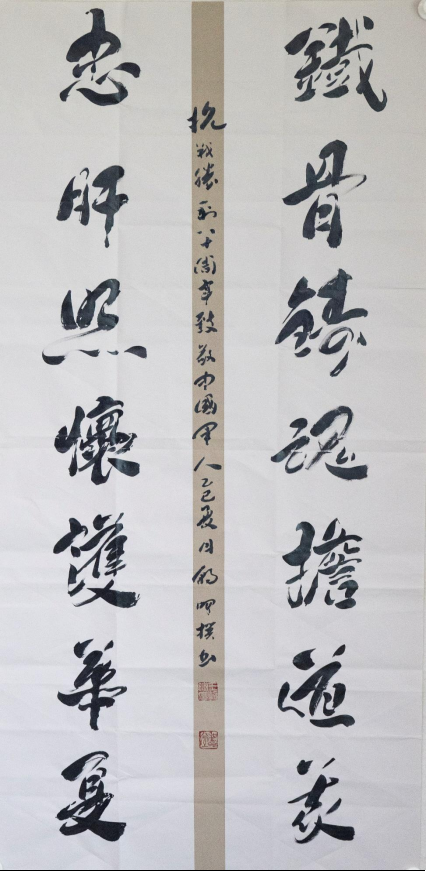 鐵骨鑄魂擔道義
忠肝照懷護華夏
抗戰勝利八十周年致敬中國軍人乙巳夏月撰書